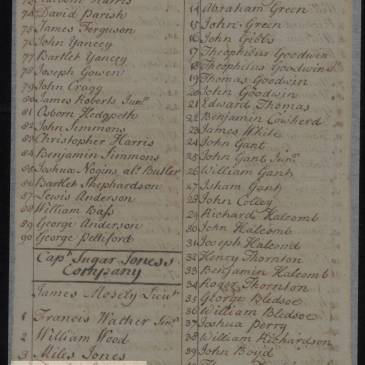 74 David Parish
75 James Ferguson
76 John Yancey
77 Bartlet Yancey
78 Joseph Gowen
79 John Cragg
80 James Roberts Junr
81 Osborn Hedgpeth
82 John Simmons
83 Christopher Harris
84 Benjamin Simmons
85 Joshua Nogins, als Butler
86 Bartlet Shephardson
87 Lewis Anderson
88 William Bass
89 George Anderson
90 George Pettiford
Capt Sugar Jones's
Company
James Mosely Lieut
1 Francis Wather Junr
2 William Wood
3 Miles Jones
14 Abraham Green
15 John Green
16 John Gibbs
17 Theophilus Goodwin
18 Theophilus Goodwin
19 Thomas Goodwin
20 John Goodwin
21 Edward Thomas
22 Benjamin Cawherd
23 James White
24 John Gant
25 John Gant Junr
26 William Gant
27 Isham Gant
28 John Colley
29 Richard Halcomb
30 John Halcomb
31 Joseph Halcomb
32 Henry Thornton
33 Benjamin Halcomb
34 Roger Thornton
35 George Bledsoe
36 William Bledsoe
37 Joshua Perry
38 William Richardson
39 John Boyd